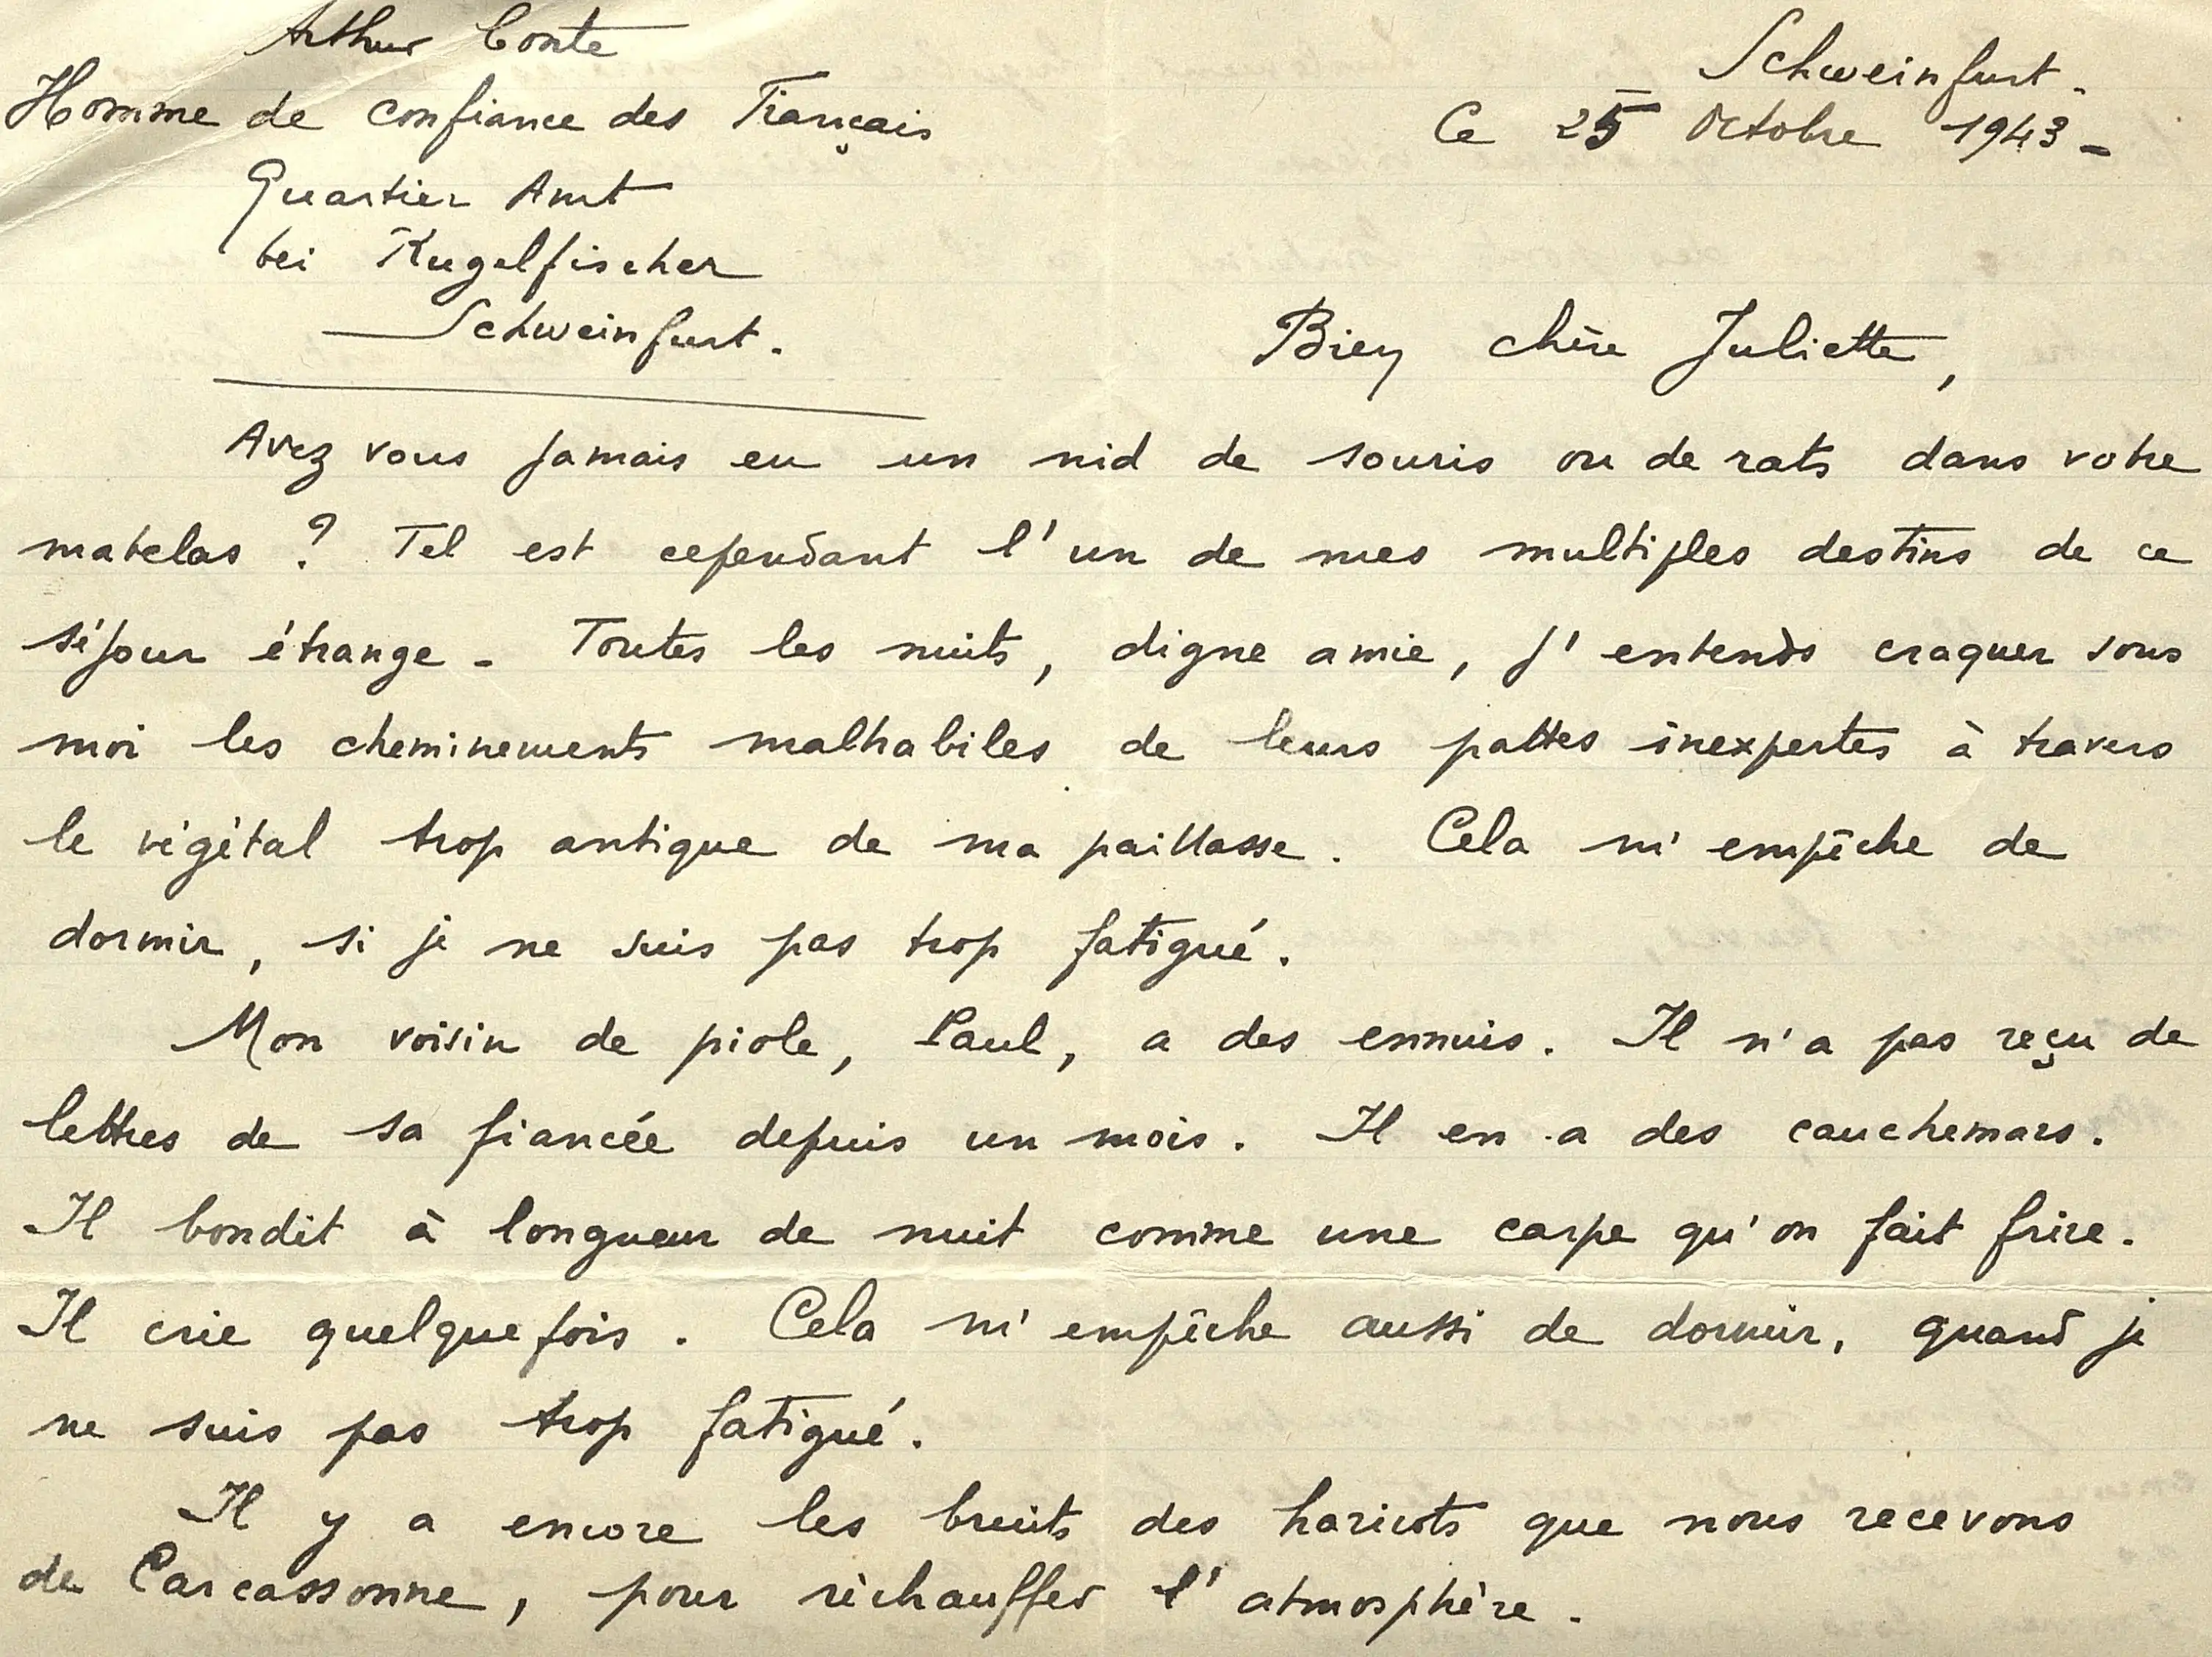 Arthur Conte
Homme de confiance des Français
Quartier Amt
bei Kugelfischer
Schweinfurt.
Schweinfurt.
Ce 25 Octobre 1943 -
Bien chère Juliette,
Avez vous jamais eu un nid de souris ou de rats dans votre
matelas ? Tel est cependant l'un de mes multiples destins de ce
séjour étrange - Toutes les nuits, digne amie, j'entends craquer sous
moi les cheminements malhabiles de leurs pattes inexpertes à travers
le végétal trop antique de ma paillasse. Cela m'empêche de
dormir, si je ne suis pas trop fatigué.
Mon voisin de piole, Paul, a des ennuis. Il n'a pas reçu de
lettres de sa fiancée depuis un mois. Il en a des cauchemars.
Il bondit à longueur de nuit comme une carpe qu'on fait frire.
Il crie quelquefois. Cela m'empêche aussi de dormir, quand je
ne suis pas trop fatigué.
Il y a encore les bruits des haricots que nous recevons
de Carcassonne, pour réchauffer l'atmosphère.